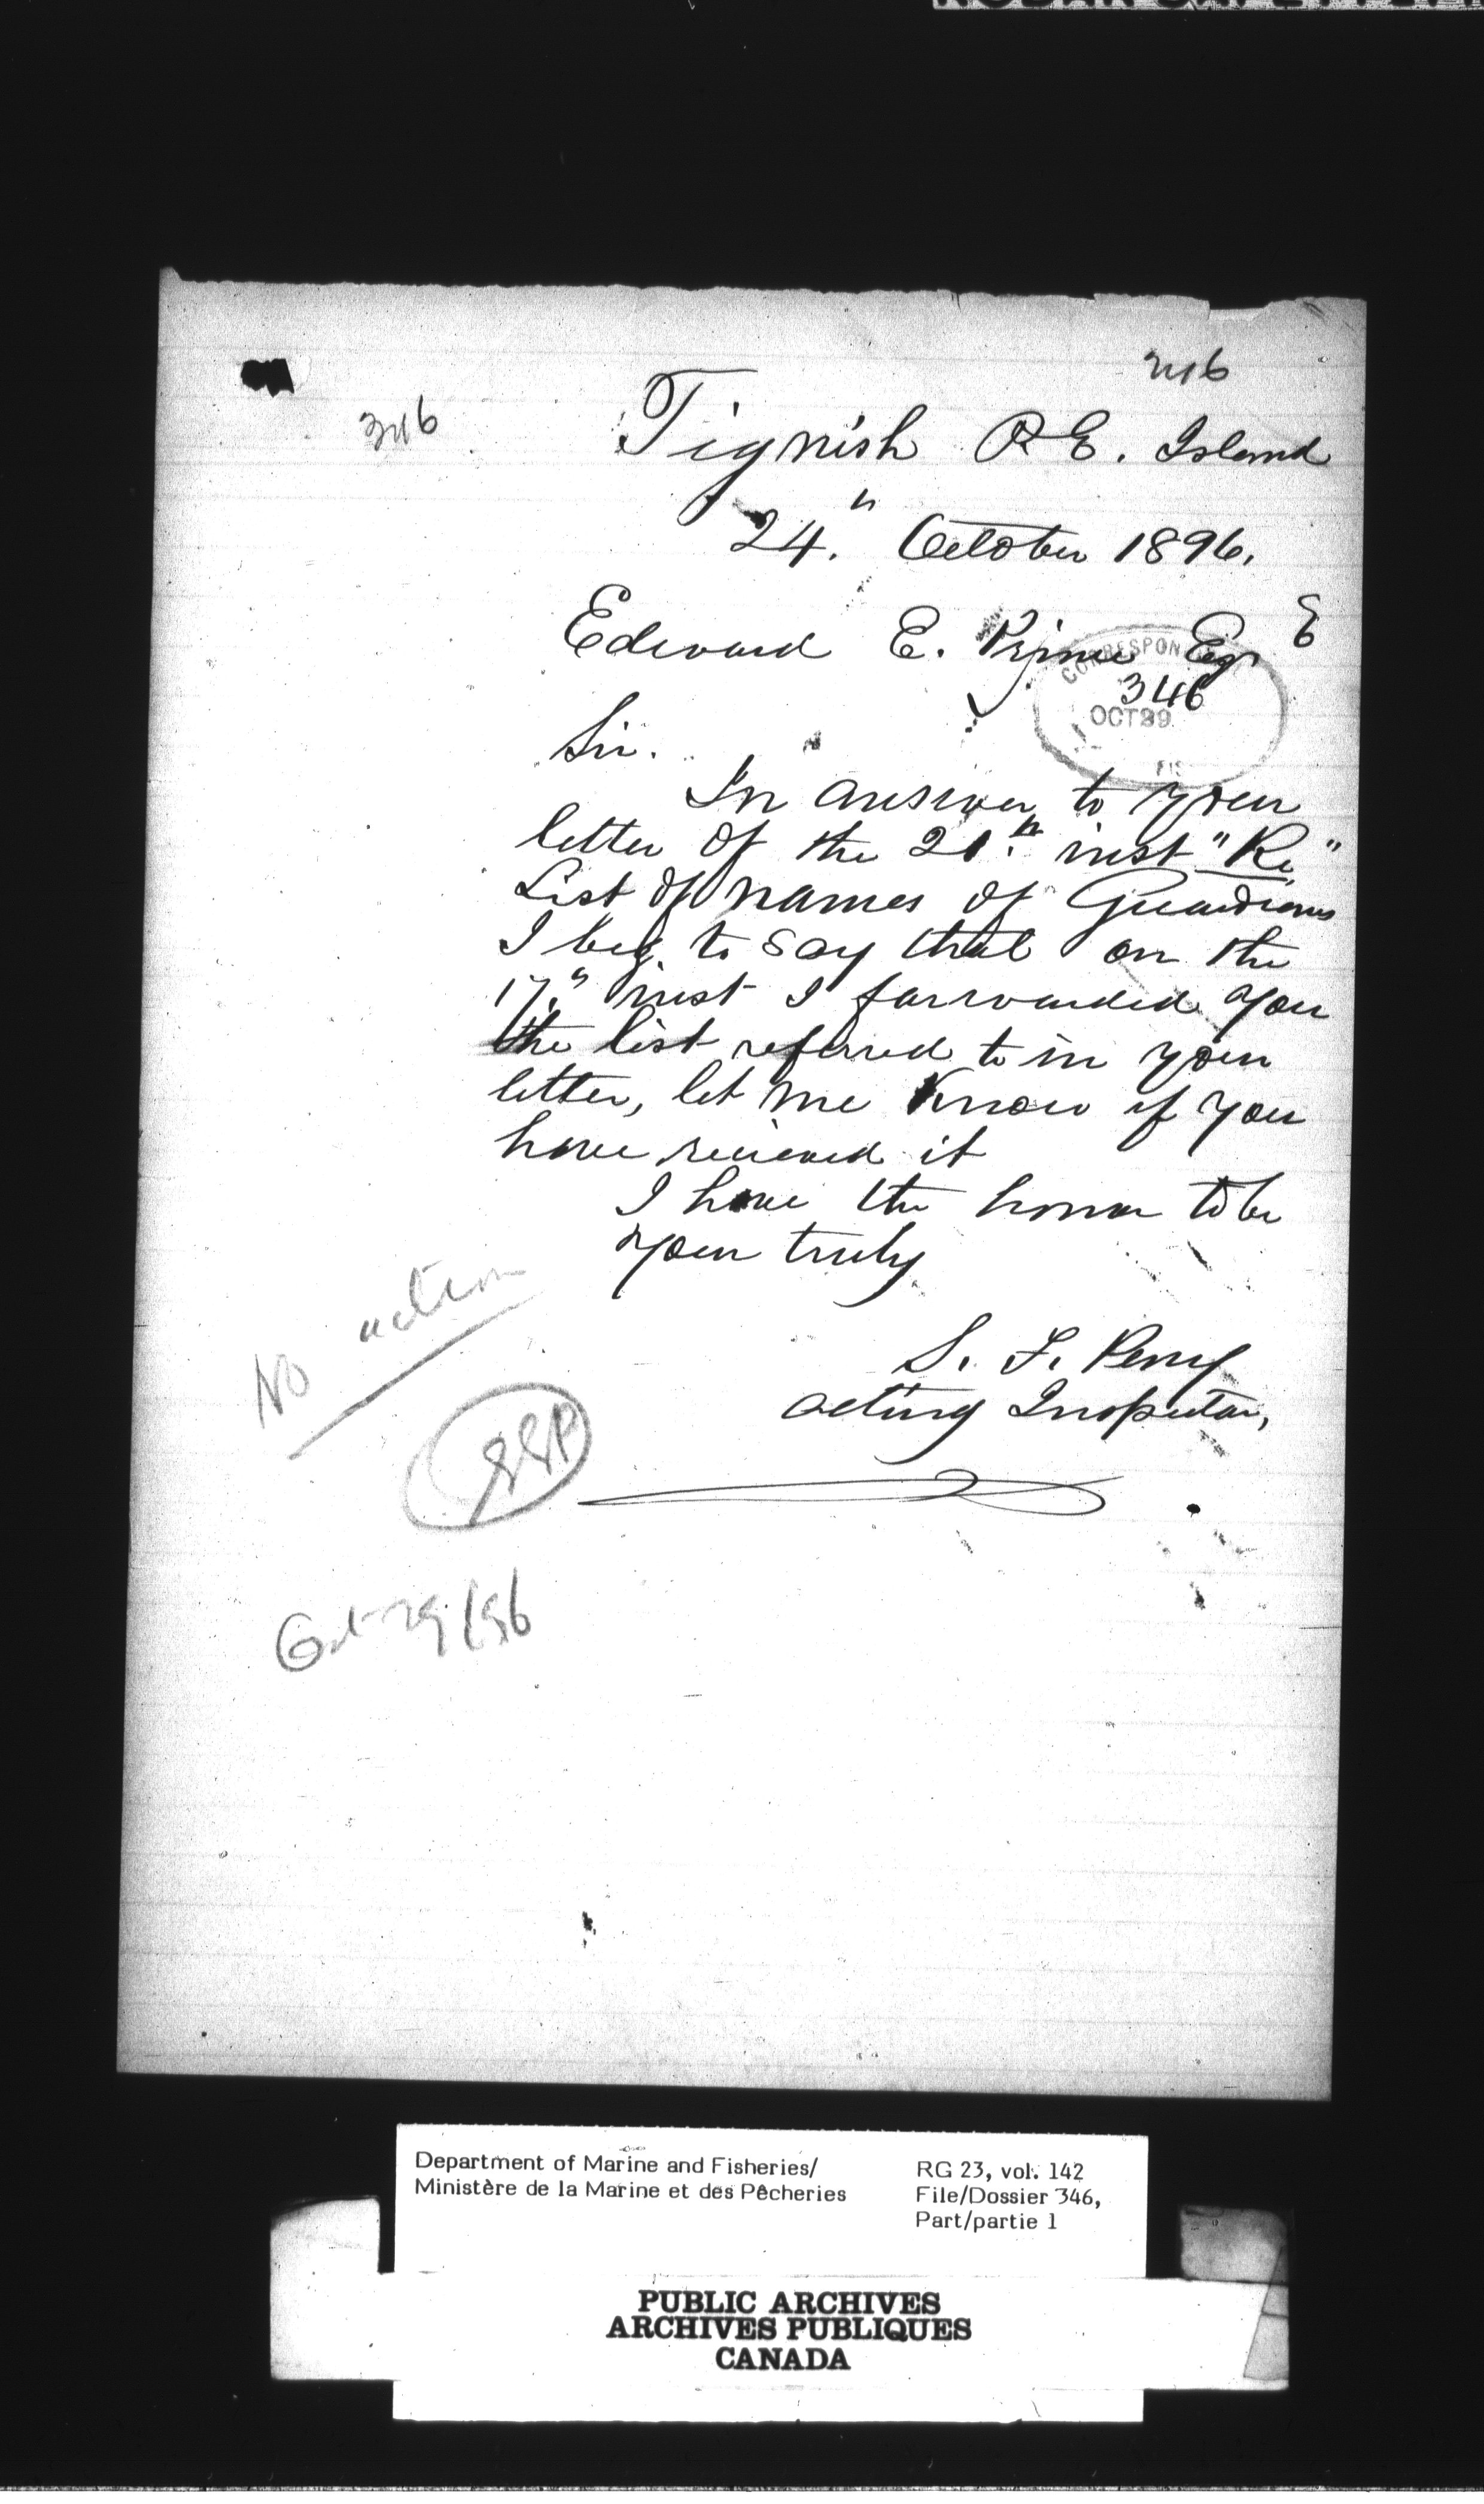 346
346
Tignish P.E. Island
24." October 1896.
Edward E. Prince Esq
E
CORRESPON
346
OCT 29
Sir.
In answer to your
letter of the 21." inst "Re"
List of names of Guardians
I beg to say that on the
17." inst I forwarded you
the list referred to in your
letter, let me Know if you
have recieved it
I have the honor to be
your truly
S. F. Perry
acting Inspector,
No action
EEP
Oct 29/96
Department of Marine and Fisheries/
Ministère de la Marine et des Pêcheries
RG 23, vol. 142
File/Dossier 346,
Part/partie 1
PUBLIC ARCHIVES
ARCHIVES PUBLIQUES
CANADA